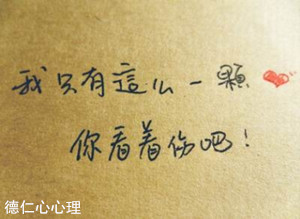 我只有這么一顆
你看着伤吧!
德仁心心理